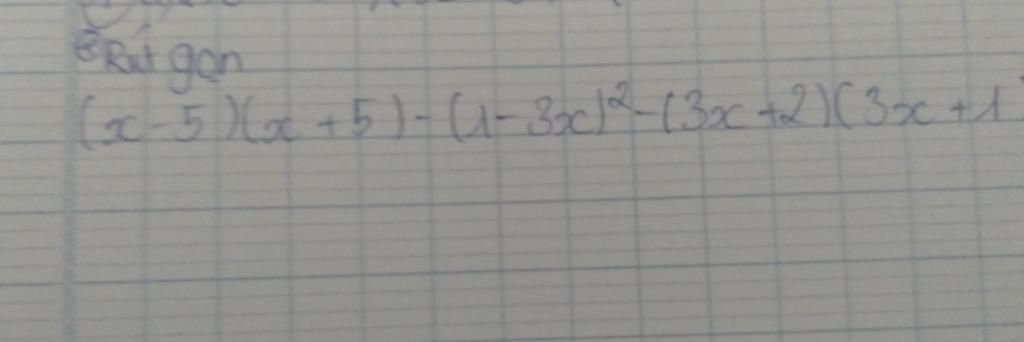 Rút gọn
(x-5)(x+5)-(1-3x)²-(3x+2)(3x+1